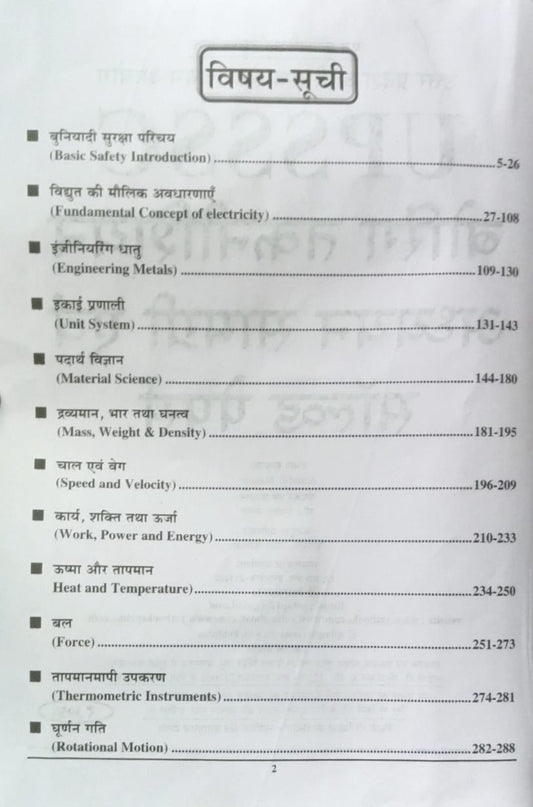 विषय-सूची
■ बुनियादी सुरक्षा परिचय
(Basic Safety Introduction) ........ 5-26
■ विद्युत की मौलिक अवधारणाएँ
(Fundamental Concept of electricity) ........ 27-108
■ इंजीनियरिंग धातु
(Engineering Metals) ........ 109-130
■ इकाई प्रणाली
(Unit System) ........ 131-143
■ पदार्थ विज्ञान
(Material Science) ........ 144-180
■ द्रव्यमान, भार तथा घनत्व
(Mass, Weight & Density) ........ 181-195
■ चाल एवं वेग
(Speed and Velocity) ........ 196-209
■ कार्य, शक्ति तथा ऊर्जा
(Work, Power and Energy) ........ 210-233
■ ऊष्मा और तापमान
Heat and Temperature) ........ 234-250
■ बल
(Force) ........ 251-273
■ तापमानमापी उपकरण
(Thermometric Instruments) ........ 274-281
■ घूर्णन गति
(Rotational Motion) ........ 282-288
2